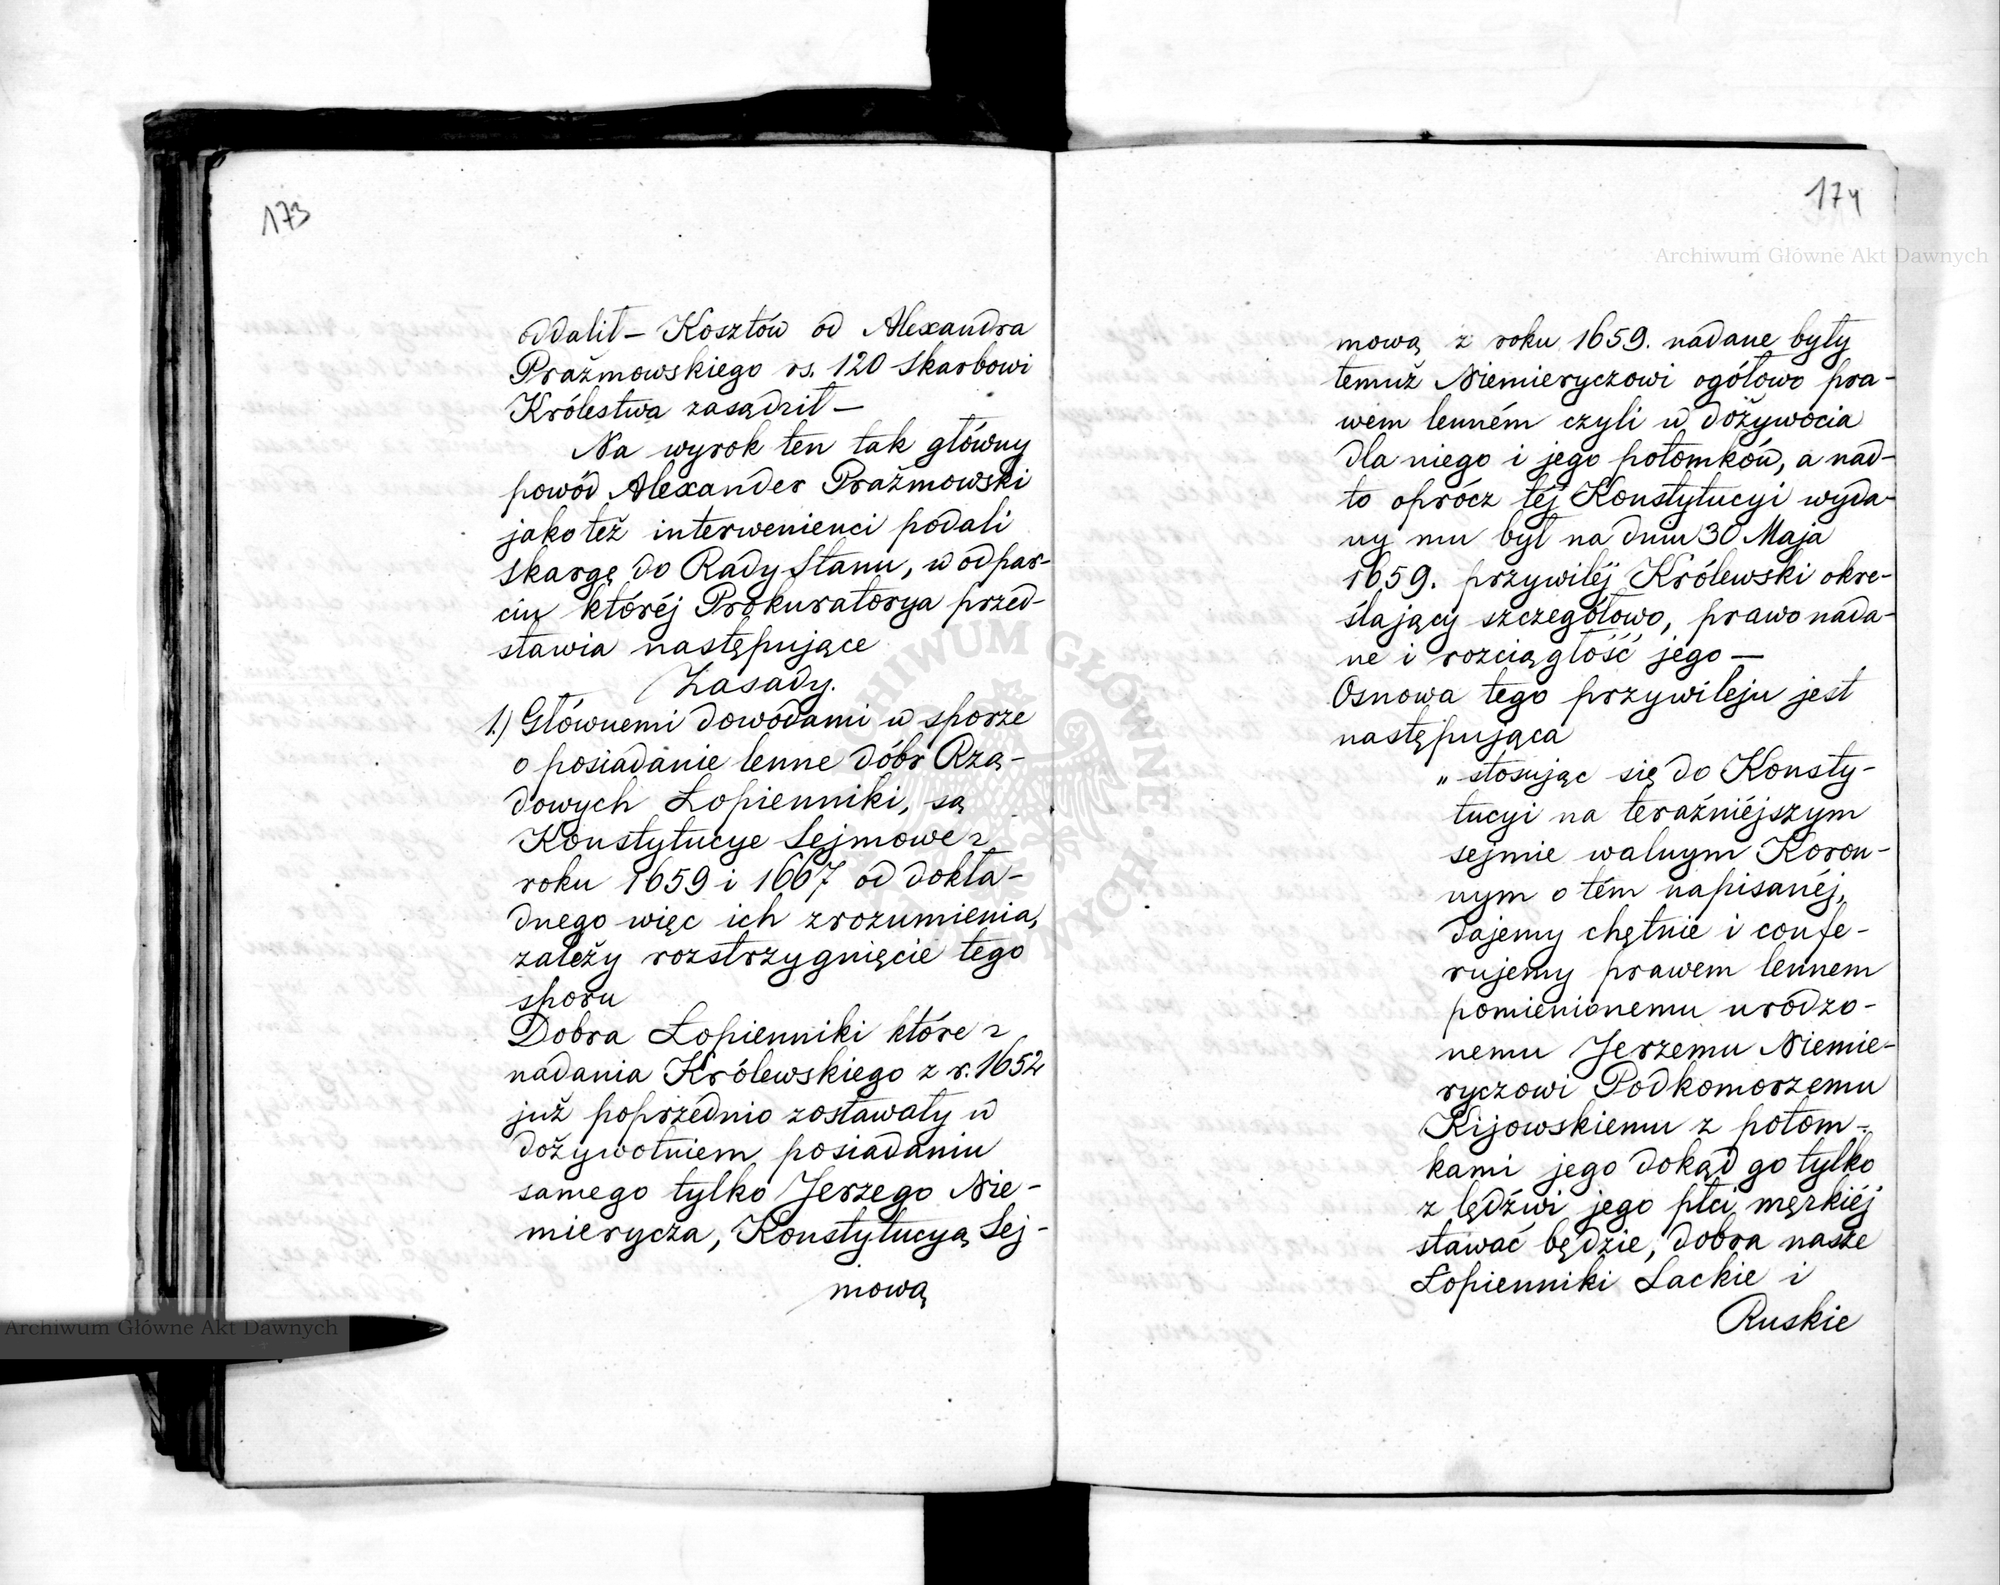 173
oddalił – Kosztów od Alexandra
Prażmowskiego rs. 120 Skarbowi
Królestwa zasądził –
Na wyrok ten tak główny
powód Alexander Prażmowski
jako też interwenienci podali
skargę do Rady Stanu, w odpar-
ciu któréj Prokuratorya przed-
stawia następujące
Zasady.
1.) Głównemi dowodami w sporze
o posiadanie lenne dóbr Rzą-
dowych Łopienniki, są
Konstytucye Sejmowe z
roku 1659 i 1667 od dokła-
dnego więc ich zrozumienia,
zależy rozstrzygnięcie tego
sporu
Dobra Łopienniki które z
nadania Królewskiego z r. 1652
już poprzednio zostawały w
dożywotniem posiadaniu
samego tylko Jerzego Nie-
mierycza, Konstytucyą Sej-
mową
174
mową z roku 1659. nadane były
temuż Niemieryczowi ogółowo pra-
wem lenném czyli w dożywocia
dla niego i jego potomków, a nad-
to oprócz téj Konstytucyi wyda-
ny mu był na dniu 30 Maja
1659. przywiléj Królewski okre-
ślający szczegółowo, prawo nada-
ne i rozciągłość jego –
Osnowa tego przywileju jest
następująca
„stosując się do Konsty-
tucyi na teraźniéjszym
sejmie walnym Koron-
nym o tém napisanéj,
dajemy chętnie i confe-
rujemy prawem lennem
pomienionemu urodzo-
nemu Jerzemu Niemie-
ryczowi Podkomorzemu
Kijowskiemu z potom-
kami jego dokąd go tylko
z lędźwi jego płci męzkiéj
stawać będzie, dobra nasze
Łopienniki Lackie i
Ruskie
Archiwum Główne Akt Dawnych
Archiwum Główne Akt Dawnych